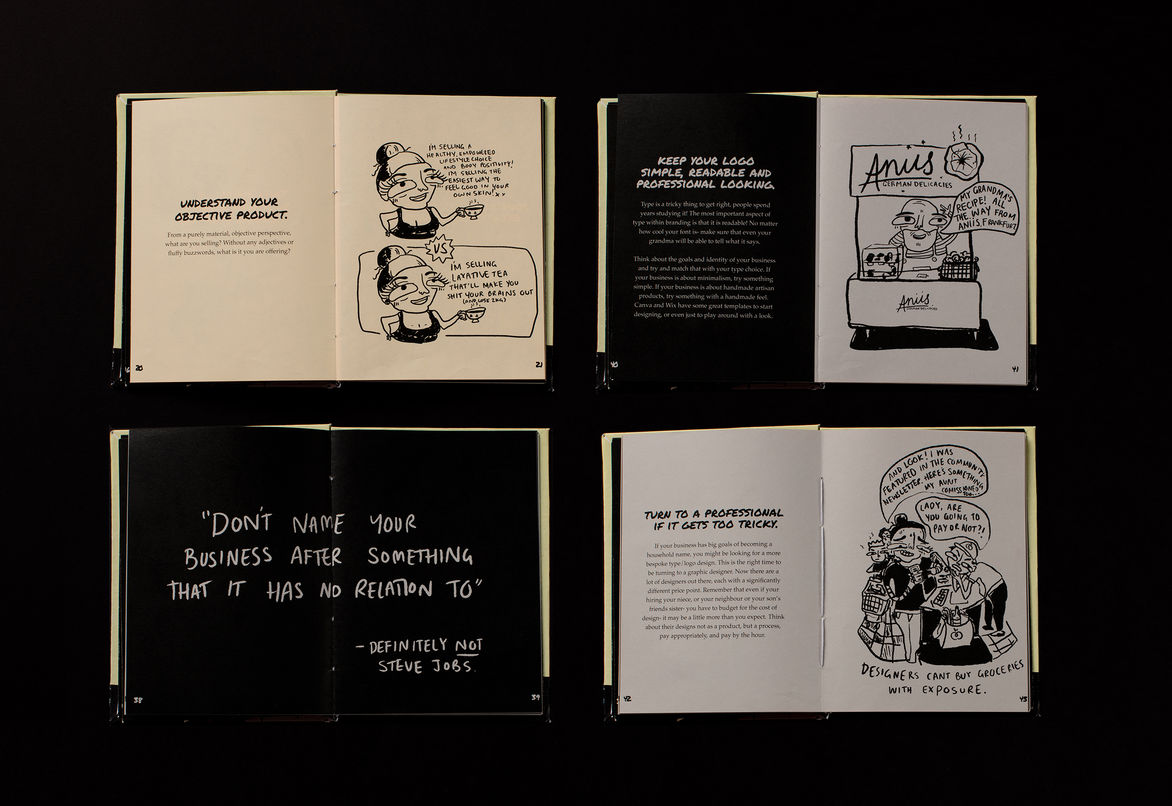 UNDERSTAND YOUR
OBJECTIVE PRODUCT.
From a purely material, objective perspective,
what are you selling? Without any adjectives or
fluffy buzzwords, what is it you are offering?
20
I'M SELLING A
HEALTHY, EMPOWERED
LIFESTYLE CHOICE
AND BODY POSITIVITY!
I'M SELLING THE
EASIEST WAY TO
FEEL GOOD IN YOUR
OWN SKIN! x x
VS
I'M SELLING
LAXATIVE TEA
THAT'LL MAKE YOU
SHIT YOUR BRAINS OUT
(AND LOSE 2KG)
21
KEEP YOUR LOGO
SIMPLE, READABLE AND
PROFESSIONAL LOOKING.
Type is a tricky thing to get right, people spend
years studying it! The most important aspect of
type within branding is that it is readable! No matter
how cool your font is- make sure that even your
grandma will be able to tell what it says.
Think about the goals and identity of your business
and try and match that with your type choice. If
your business is about minimalism, try something
simple. If your business is about handmade artisan
products, try something with a handmade feel.
Canva and Wix have some great templates to start
designing, or even just to play around with a look.
40
Aniis
GERMAN DELICACIES
MY GRANDMA'S
RECIPE! ALL
THE WAY FROM
ANIIS, FRANKFURT
Aniis
GERMAN DELICACIES
41
"DON'T NAME YOUR
BUSINESS AFTER SOMETHING
THAT IT HAS NO RELATION TO"
- DEFINITELY NOT
STEVE JOBS.
38
39
TURN TO A PROFESSIONAL
IF IT GETS TOO TRICKY.
If your business has big goals of becoming a
household name, you might be looking for a more
bespoke type/logo design. This is the right time to
be turning to a graphic designer. Now there are a
lot of designers out there, each with a significantly
different price point. Remember that even if your
hiring your niece, or your neighbour or your son's
friends sister- you have to budget for the cost of
design- it may be a little more than you expect. Think
about their designs not as a product, but a process,
pay appropriately, and pay by the hour.
42
AND LOOK! I WAS
FEATURED IN THE COMMUNITY
NEWSLETTER. HERE'S SOMETHING
MY AUNT
COMISSIONED
LADY, ARE
YOU GOING TO
PAY OR NOT?!
DESIGNERS CANT BUY GROCERIES
WITH EXPOSURE.
43